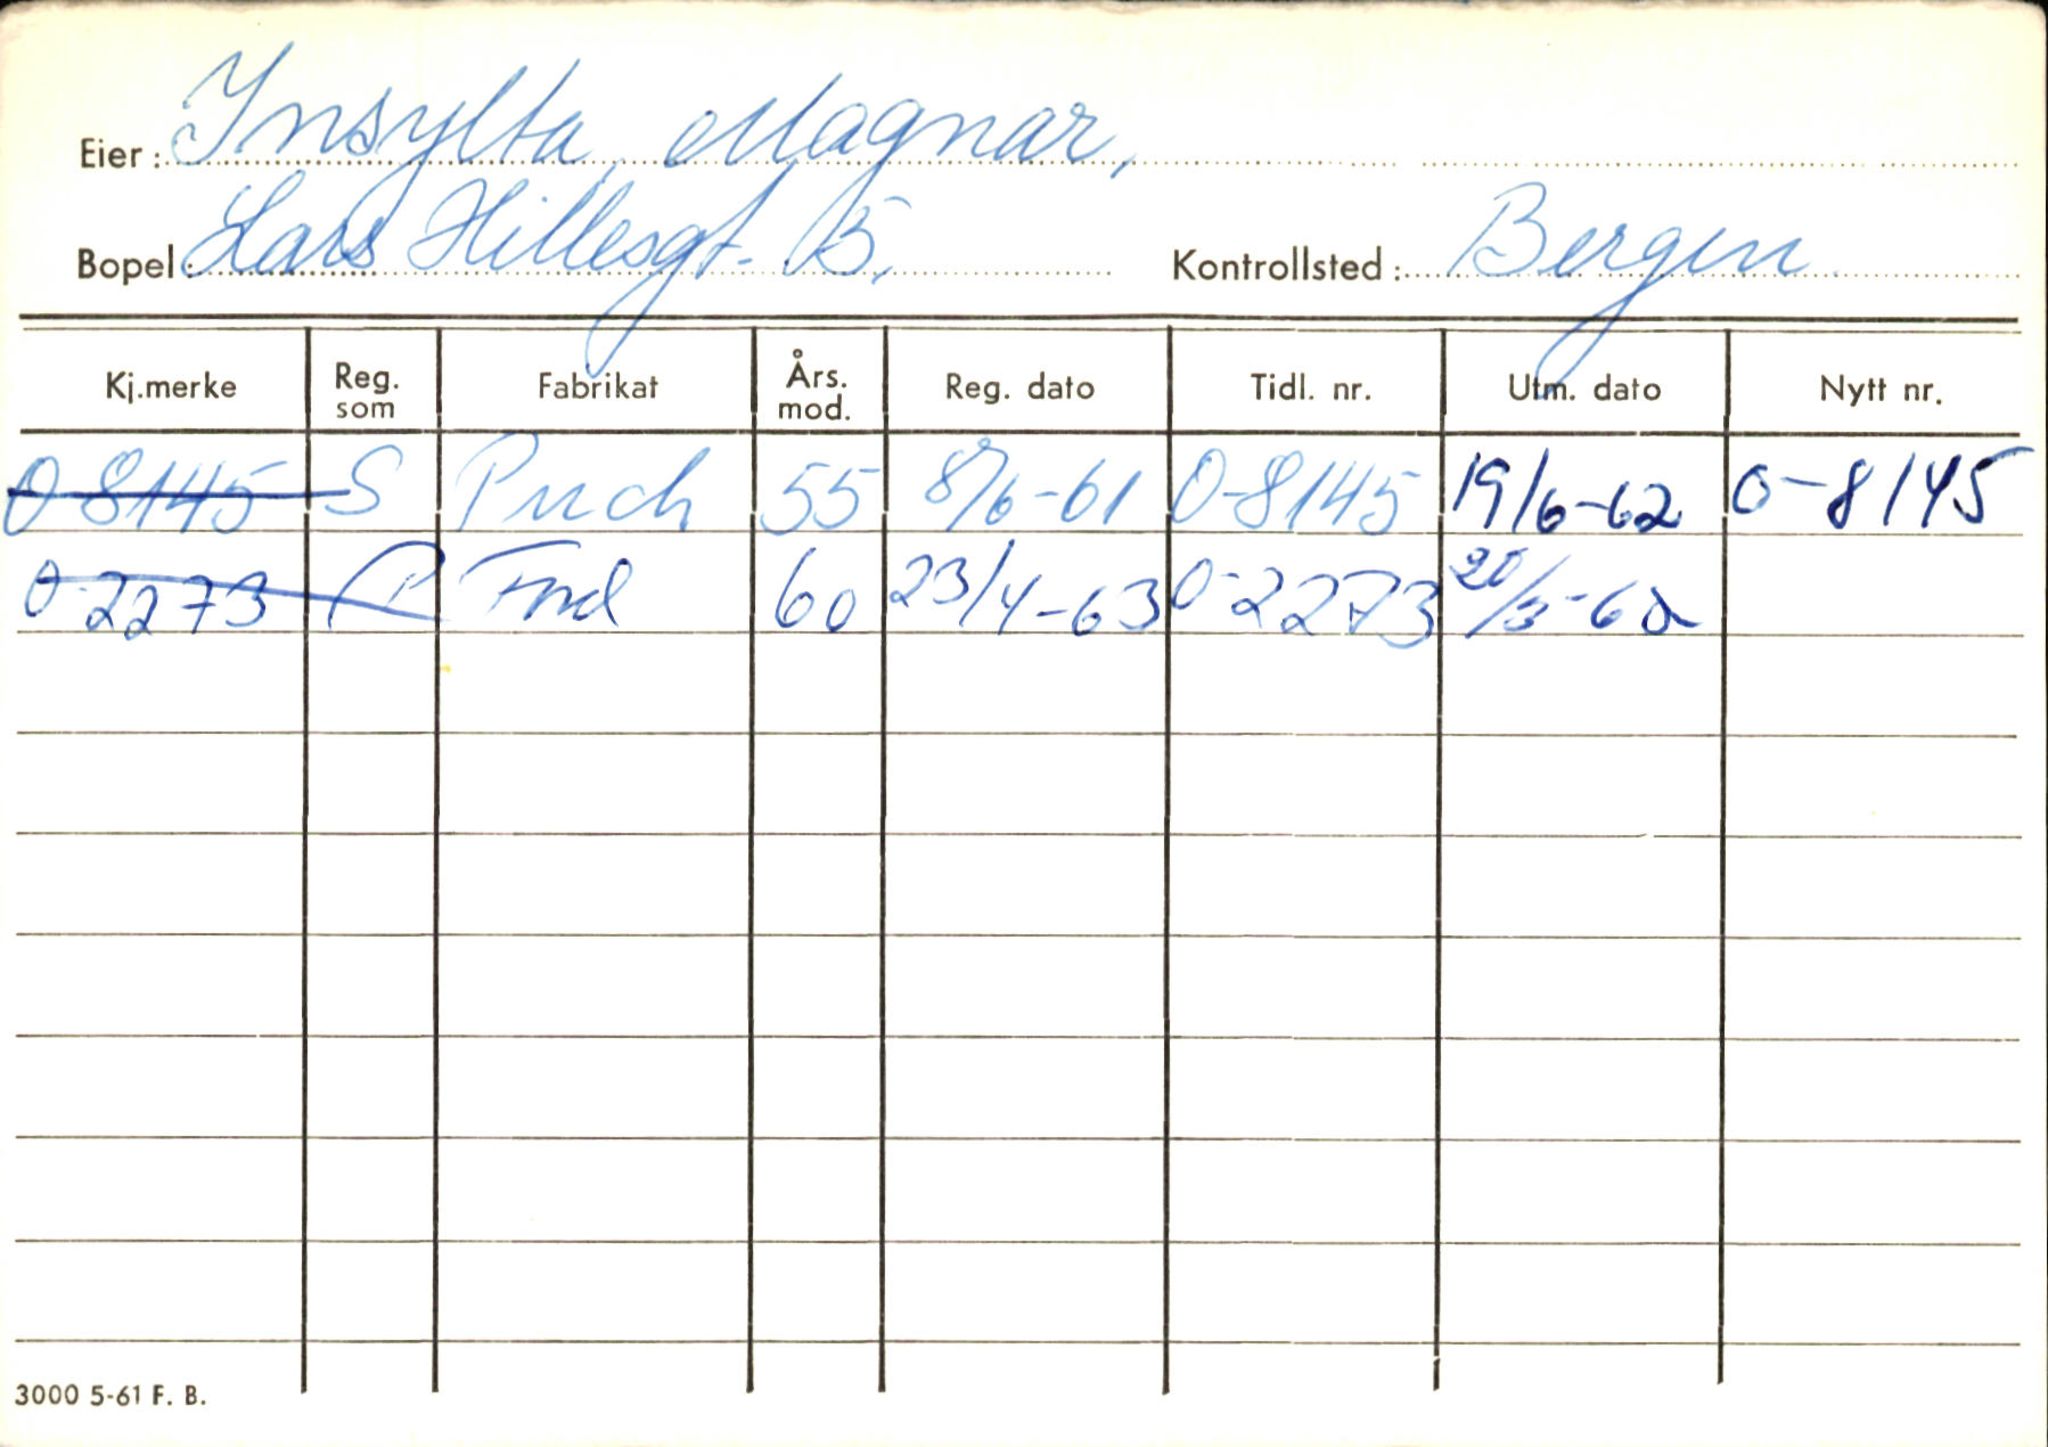 Eier: Ynsylta, Magnar,
Bopel: Lars Hillesgt. 15, Kontrollsted: Bergen
Kj.merke Reg. som Fabrikat Års. mod. Reg. dato Tidl. nr. Utm. dato Nytt nr.
O-8145 S Puch 55 8/6-61 O-8145 19/6-62 O-8145
O-2273 P Ford 60 23/4-63 O-2273
3000 5-61 F. B.